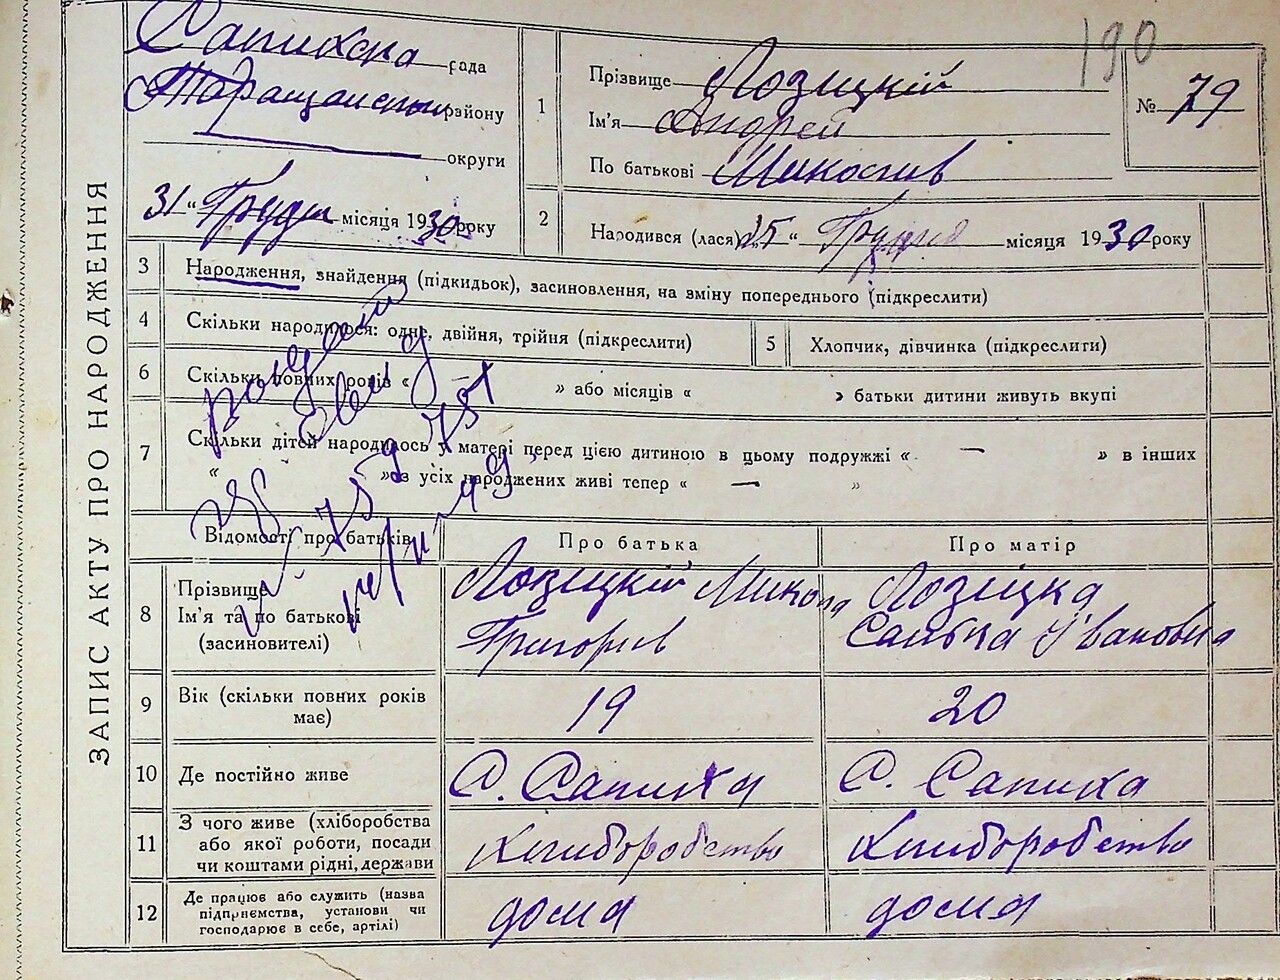 190
рада
району
округи
31 " Грудня місяця 1930 року
1
Прізвище Лозицкій
Ім'я Андрей
По батькові Миколив
№ 79
2
Народився (лася) 25 " Грудня місяця 1930 року
ЗАПИС АКТУ ПРО НАРОДЖЕННЯ
3 Народження, знайдення (підкидьок), засиновлення, на зміну попереднього (підкреслити)
4 Скільки народилося: одне, двійня, трійня (підкреслити)
5 Хлопчик, дівчинка (підкреслити)
6 Скільки повних років « » або місяців « » батьки дитини живуть вкупі
7 Скільки дітей народилось у матері перед цією дитиною в цьому подружжі « — » в інших
« » з усіх народжених живі тепер « — »
Відомості про батьків
Про батька
Про матір
8 Прізвище
Ім'я та по батькові
(засиновителі)
Лозицкій Микола
Григорів
Лозіцка
Івановна
9 Вік (скільки повних років
має)
19
20
10 Де постійно живе
С. Сапиха
С. Сапиха
11 З чого живе (хліборобства
або якої роботи, посади
чи коштами рідні, держави
Хлиборобство
Хлиборобство
12 Де працює або служить (назва
підприємства, установи чи
господарює в себе, артілі)
дома
дома